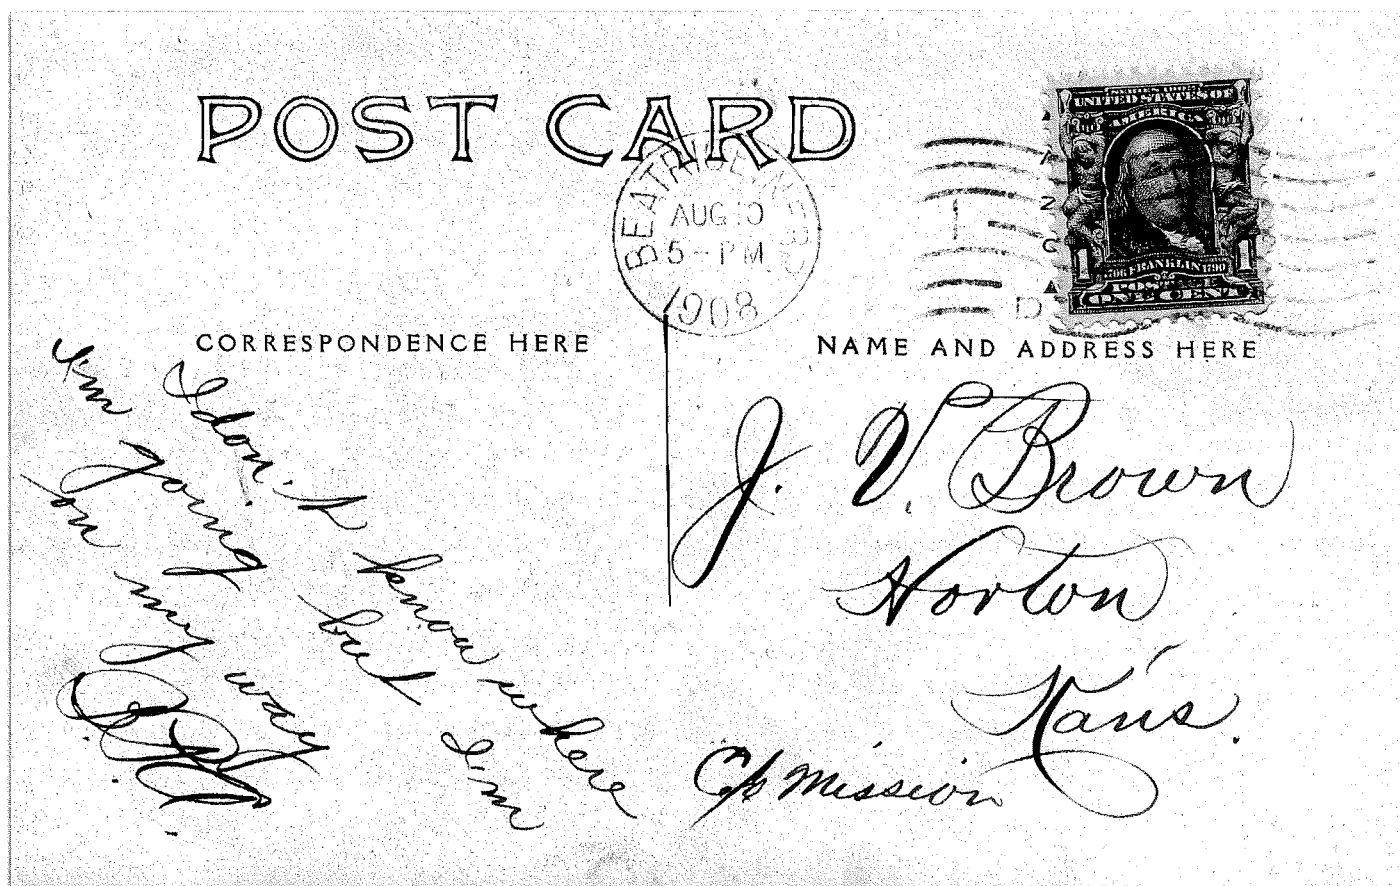 POST CARD
BEATRICE, NEBR.
AUG 10
5 - PM
1908
UNITED STATES OF
AMERICA
1706 FRANKLIN 1790
POSTAGE
1 ONE CENT 1
CORRESPONDENCE HERE
NAME AND ADDRESS HERE
I don't know where
I'm going but I'm
on my way
J. V. Brown
Norton
Kans.
C/o Mission